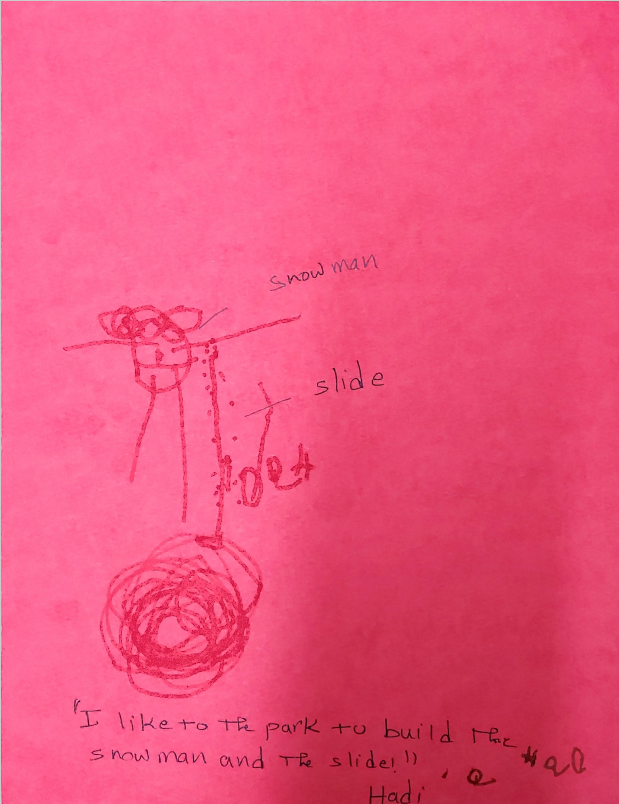 snowman
slide
"I like to the park to build the
snowman and the slide!"
Hadi